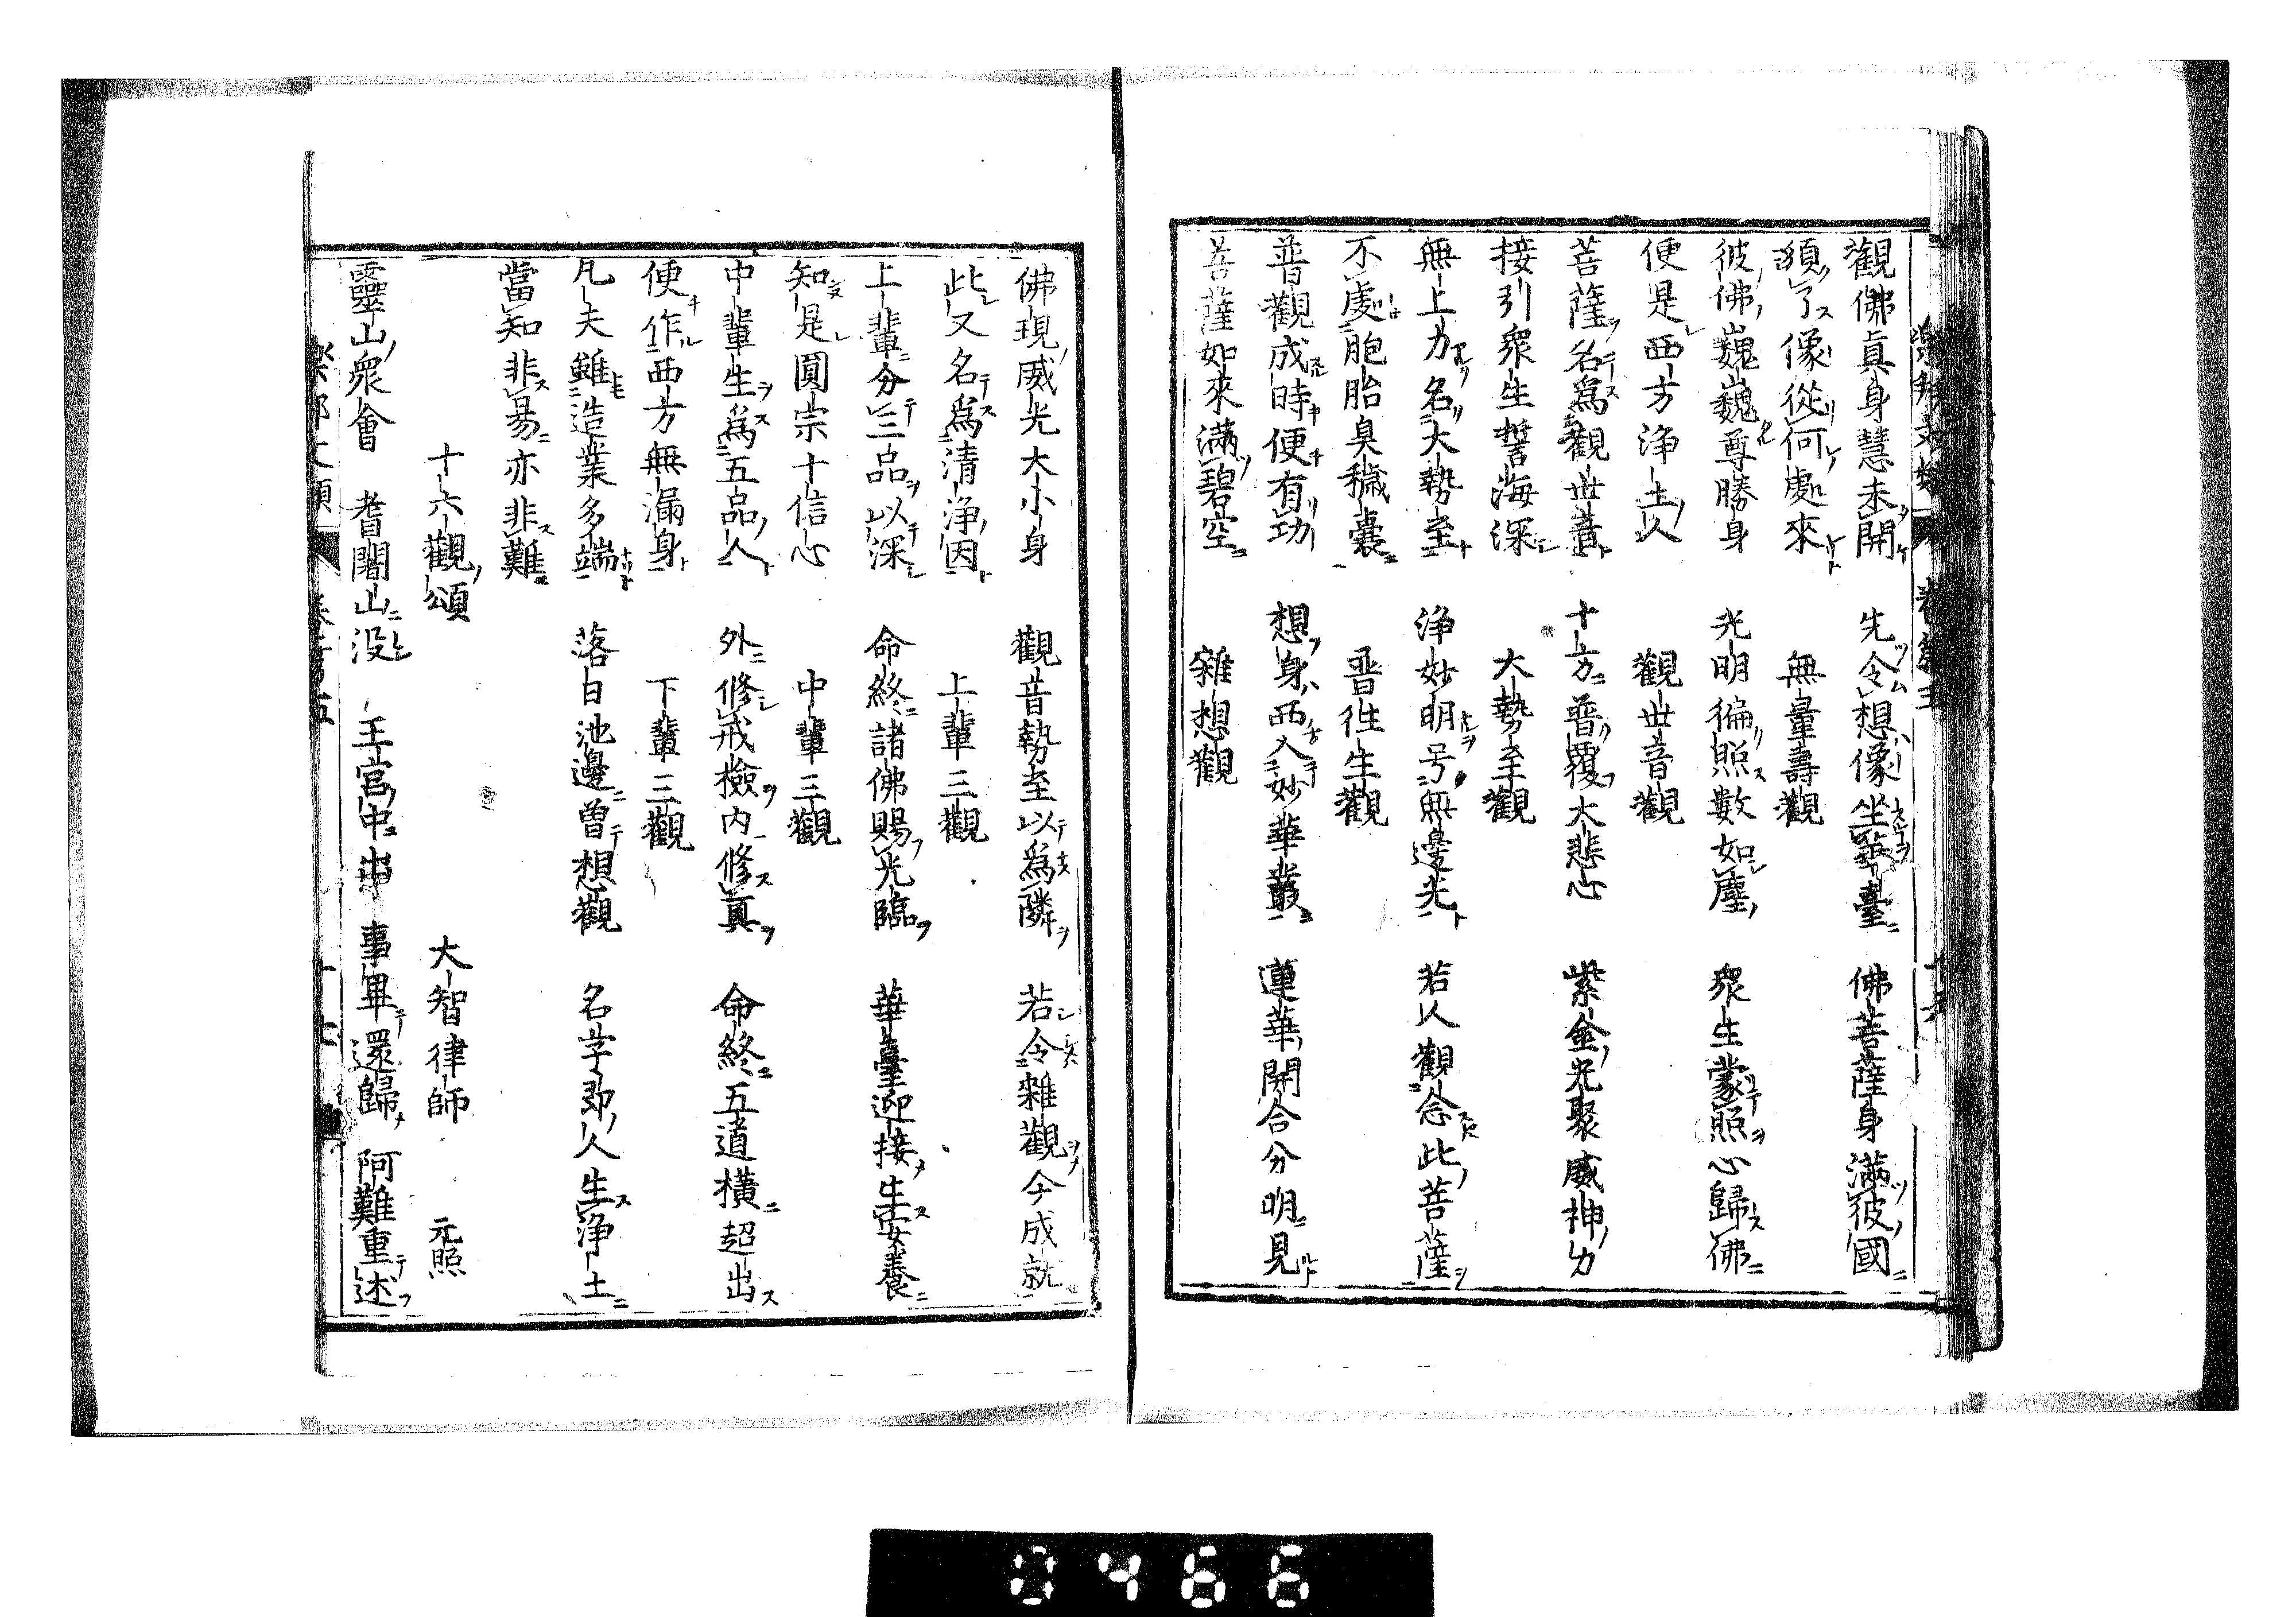 觀佛眞身慧未開　先令想像坐華臺　佛菩薩身滿彼國
須了像從何處來　無量壽觀
彼佛巍巍尊勝身　光明徧照數如塵　衆生蒙照心歸佛
便是西方淨土人　觀世音觀
菩薩名爲觀世音　十方普覆大悲心　紫金光聚威神力
接引衆生誓海深　大勢至觀
無上力名大勢至　淨妙明号無邊光　若人觀念此菩薩
不處胞胎臭穢囊　普徃生觀
普觀成時便有功　想身西入妙華叢　蓮華開合分明見
菩薩如來滿碧空　雜想觀
佛現威光大小身　觀音勢至以爲隣　若令雜觀今成就
此又名爲清淨因　上輩三觀
上輩分三品以深　命終諸佛賜光臨　華臺迎接生安養
知是圓宗十信心　中輩三觀
中輩生爲五品人　外修戒檢内修眞　命終五道橫超出
便作西方無漏身　下輩三觀
凡夫雖造業多端　落日池邊曽想觀　名字即人生淨土
當知非易亦非難
十六觀頌　大智律師　元照
靈山衆會　耆闍山没　王宮中出　事畢還歸　阿難重述
樂邦文類　卷第五　十七
0466